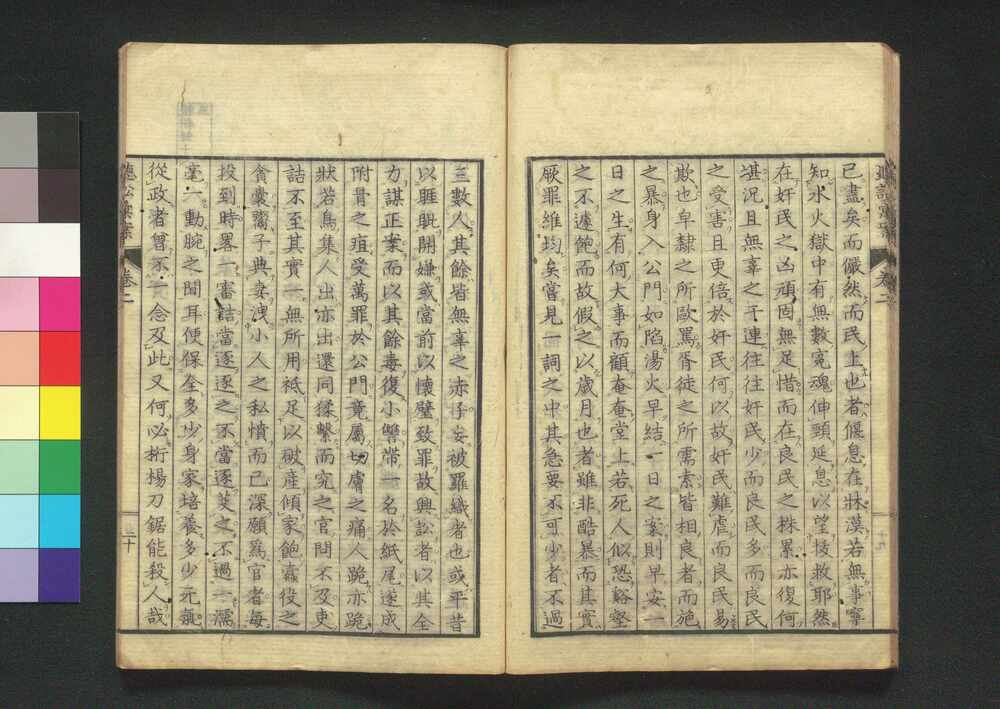 已盡矣而儼然而民上也者偃息在牀漠若無事寧
知水火獄中有無數冤魂伸頸延息以望援救耶然
在奸民之凶頑固無足惜而在良民之株累亦復何
堪況且無辜之干連往往奸民少而良民多而良民
之受害且更倍於奸民何以故奸民難虐而良民易
欺也皁隸之所歐罵胥徒之所需索皆相良者而施
之暴身入公門如陷湯火早結一日之案則早安一
日之生有何大事而顧奄奄堂上若死人似恐谿壑
之不遽飽而故假之以歲月也者雖非酷暴而其實
厥罪維均矣嘗見一詞之中其急要不可少者不過
卷二
三數人其餘皆無辜之赤子妄被羅織者也或平昔
以睚眦開嫌或當前以懷璧致罪故興訟者以其全
力謀正業而以其餘毒復小讐帶一名於紙尾遂成
附骨之疽受萬罪於公門竟屬切膚之痛人跪亦跪
狀若鳥集人出亦出還同揉繫而究之官問不及吏
詰不至其實一無所用祗足以破產傾家飽蠹役之
貪囊鬻子典妻洩小人之私憤而已深願爲官者每
投到時畧一審詰當逐逐之不當逐芟之不過一濡
毫一動腕之間耳便保全多少身家培養多少元氣
從政者曾不一念及此又何必桁楊刀鋸能殺人哉
聽訟彙案
卷二
二十